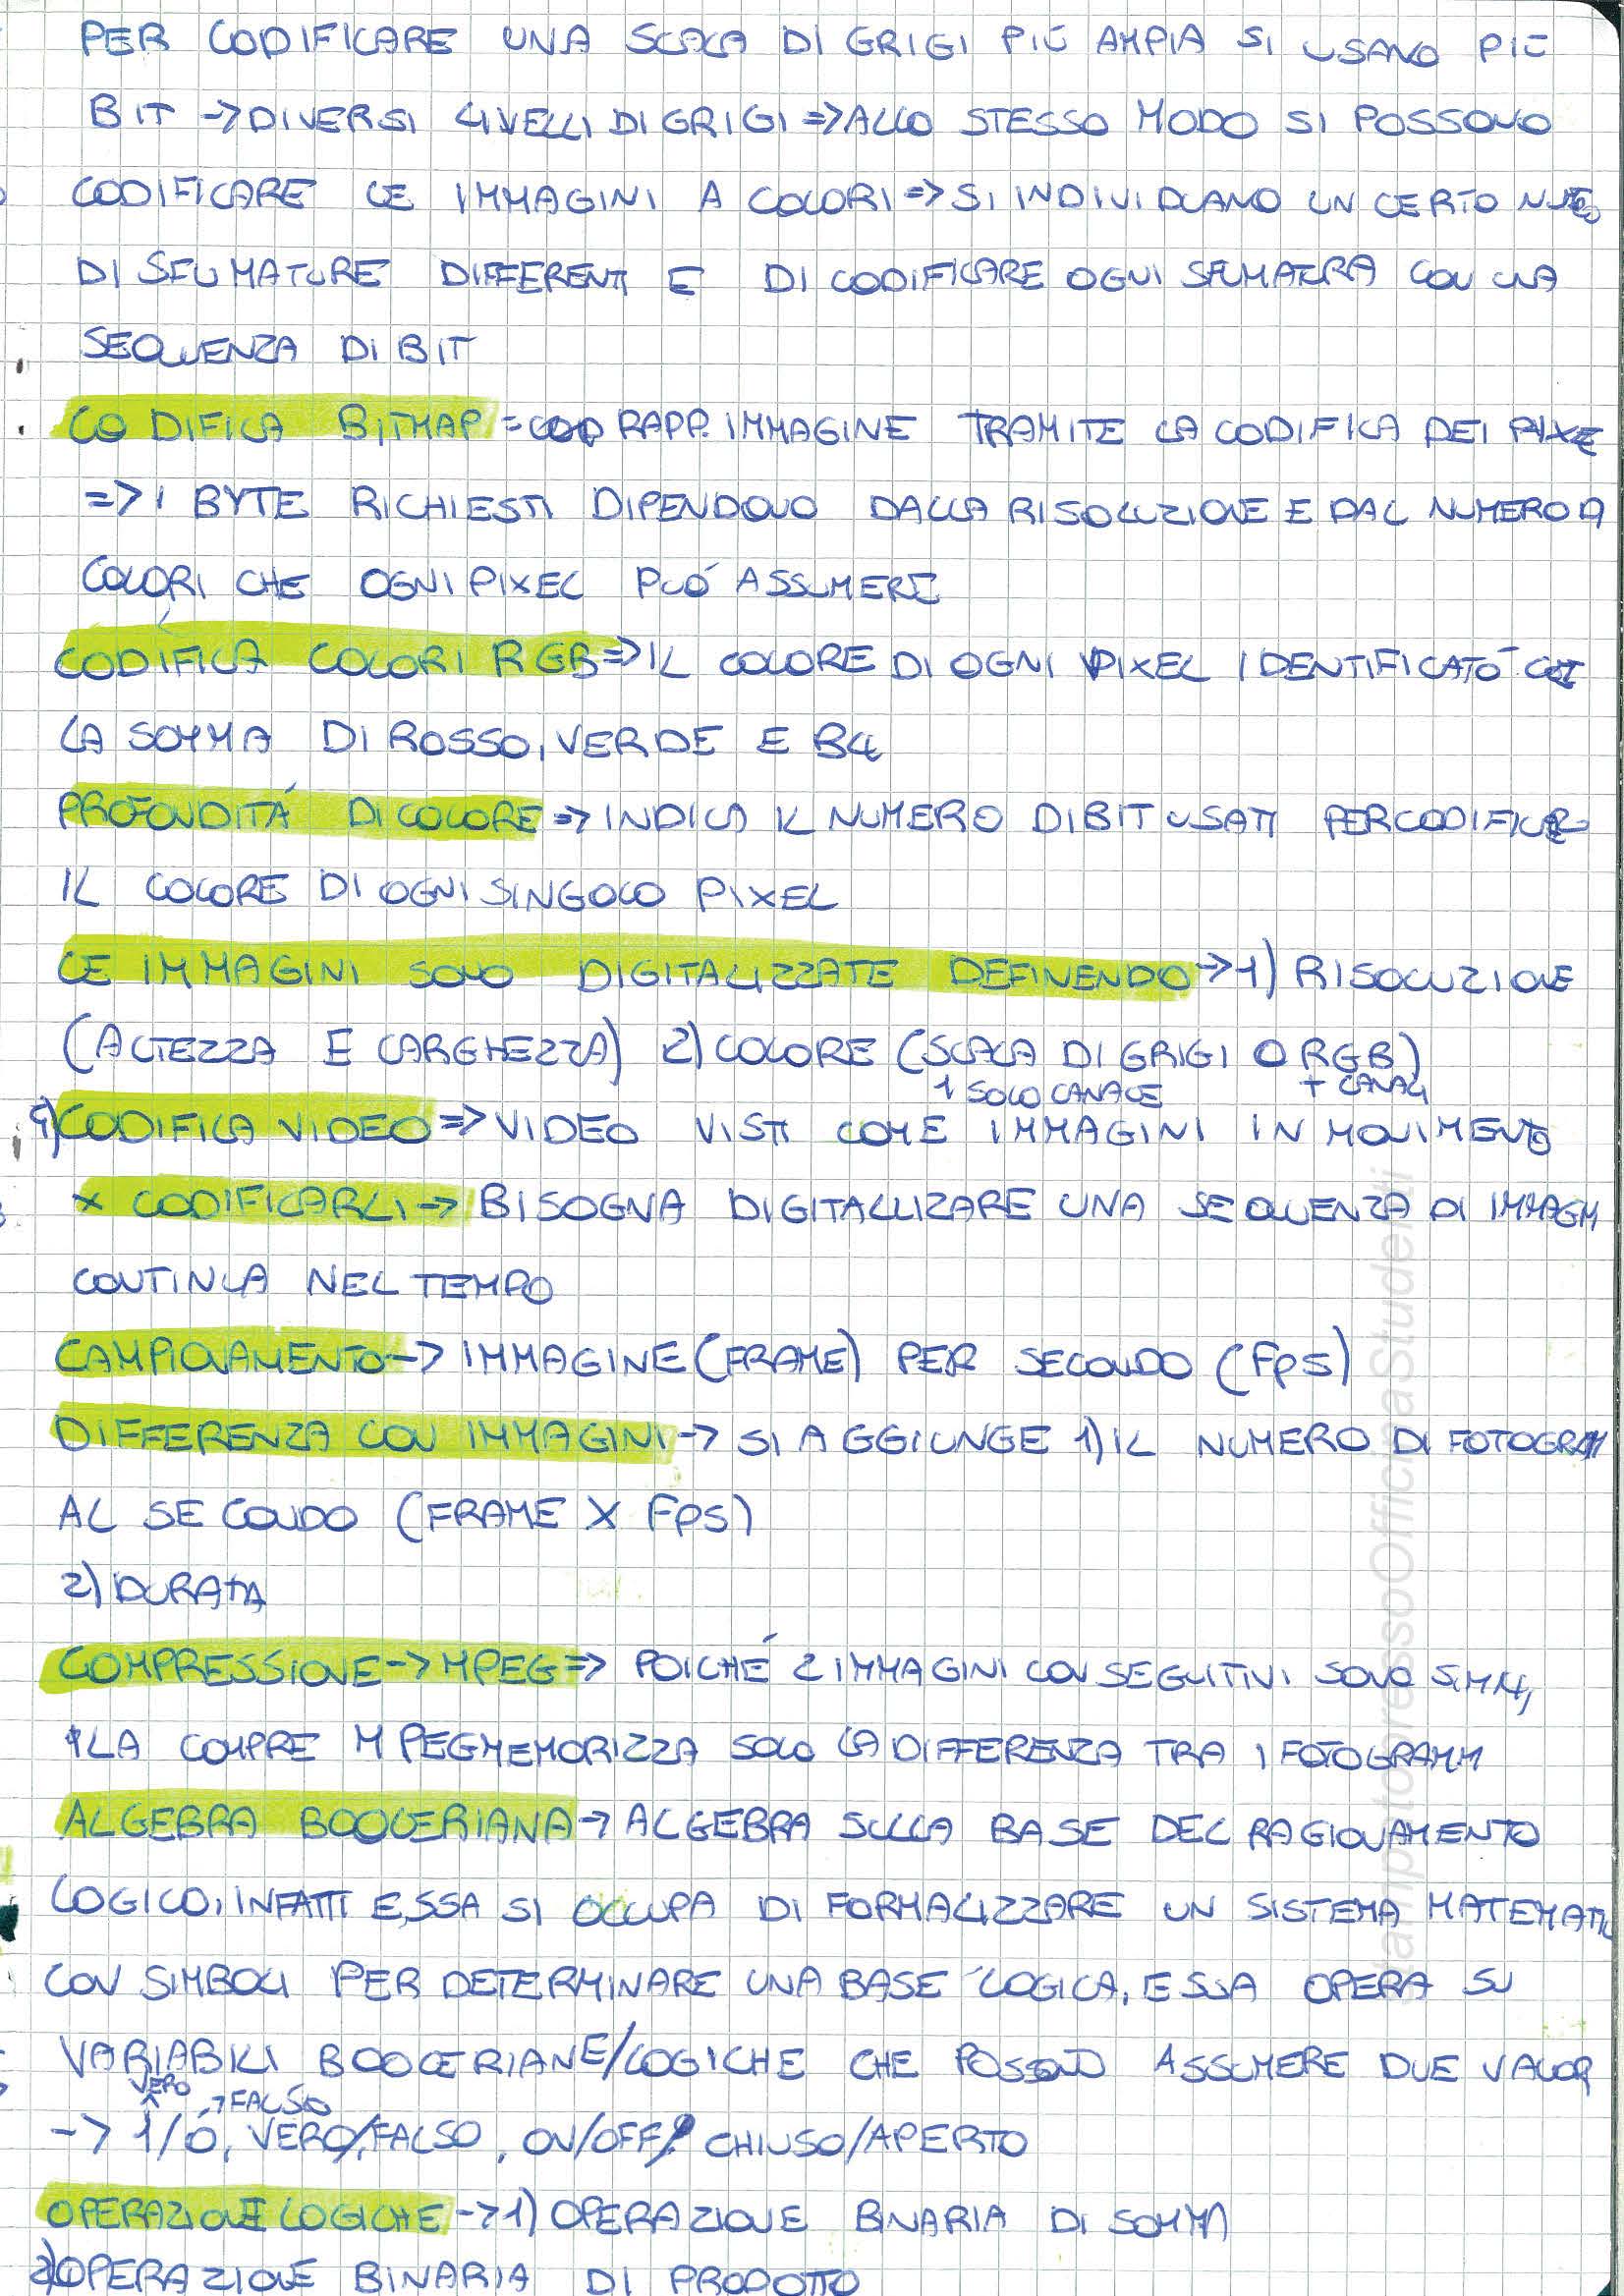 PER CODIFICARE UNA SCALA DI GRIGI PIÙ AMPIA SI USANO PIÙ
BIT -> DIVERSI LIVELLI DI GRIGI => ALLO STESSO MODO SI POSSONO
CODIFICARE LE IMMAGINI A COLORI => SI INDIVIDUANO UN CERTO
DI SFUMATURE DIFFERENTI E DI CODIFICARE OGNI SFUMATURA CON UNA
SEQUENZA DI BIT
CODIFICA BITMAP = RAPP. IMMAGINE TRAMITE LA CODIFICA DEI
=> I BYTE RICHIESTI DIPENDONO DALLA RISOLUZIONE E DAL NUMERO DI
COLORI CHE OGNI PIXEL PUÓ ASSUMERE
CODIFICA COLORI RGB => IL COLORE DI OGNI PIXEL IDENTIFICATO
LA SOMMA DI ROSSO, VERDE E BLU
PROFONDITÁ DI COLORE => INDICA IL NUMERO DI BIT USATI PER CODIFICARE
IL COLORE DI OGNI SINGOLO PIXEL
LE IMMAGINI SONO DIGITALIZZATE DEFINENDO -> 1) RISOLUZIONE
(ALTEZZA E LARGHEZZA) 2) COLORE (SCALA DI GRIGI O RGB)
1 SOLO CANALE + CANALI
4) CODIFICA VIDEO => VIDEO VISTI COME IMMAGINI IN MOVIMENTO
X CODIFICARLI -> BISOGNA DIGITALLIZARE UNA SEQUENZA DI IMMAGINI
CONTINUA NEL TEMPO
CAMPIONAMENTO -> IMMAGINE (FRAME) PER SECONDO (Fps)
DIFFERENZA CON IMMAGINI -> SI AGGIUNGE 1) IL NUMERO DI FOTOGRAMMI
AL SECONDO (FRAME X Fps)
2) DURATA
COMPRESSIONE -> MPEG => POICHÉ 2 IMMAGINI CONSEGUITIVI SONO SIMILI,
LA COMPRE MPEG MEMORIZZA SOLO LA DIFFERENZA TRA I FOTOGRAMMI
ALGEBRA BOOLERIANA -> ALGEBRA SULLA BASE DEL RAGIONAMENTO
LOGICO, INFATTI ESSA SI OCCUPA DI FORMALIZZARE UN SISTEMA MATEMATIC
CON SIMBOLI PER DETERMINARE UNA BASE LOGICA, ESSA OPERA SU
VARIABILI BOOLERIANE/LOGICHE CHE POSSONO ASSUMERE DUE VALORI
VERO -> FALSO
-> 1/0, VERO/FALSO, ON/OFF, CHIUSO/APERTO
OPERAZIONI LOGICHE -> 1) OPERAZIONE BINARIA DI SOMMA
2) OPERAZIONE BINARIA DI PRODOTTO
stampatopressoOfficinaStudenti